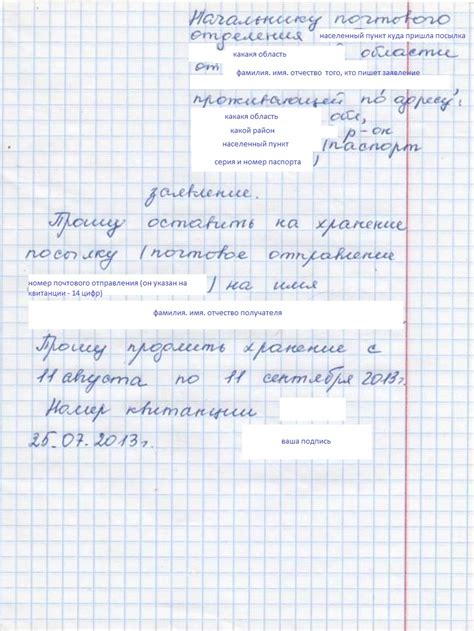 Начальнику почтового
отделения населенный пункт куда пришла посылка
какакя область области
от фамилия. имя. отчество того, кто пишет заявление
проживающей по адресу:
какакя область обл,
какой район р-он
населенный пункт (паспорт
серия и номер паспорта )
заявление.
Прошу оставить на хранение
посылку (почтовое отправление
номер почтового отправления (он указан на
квитанции - 14 цифр) ) на имя
фамилия. имя. отчество получателя
Прошу продлить хранение с
11 августа по 11 сентября 2013г.
Номер квитанции
25.07.2013г. ваша подпись